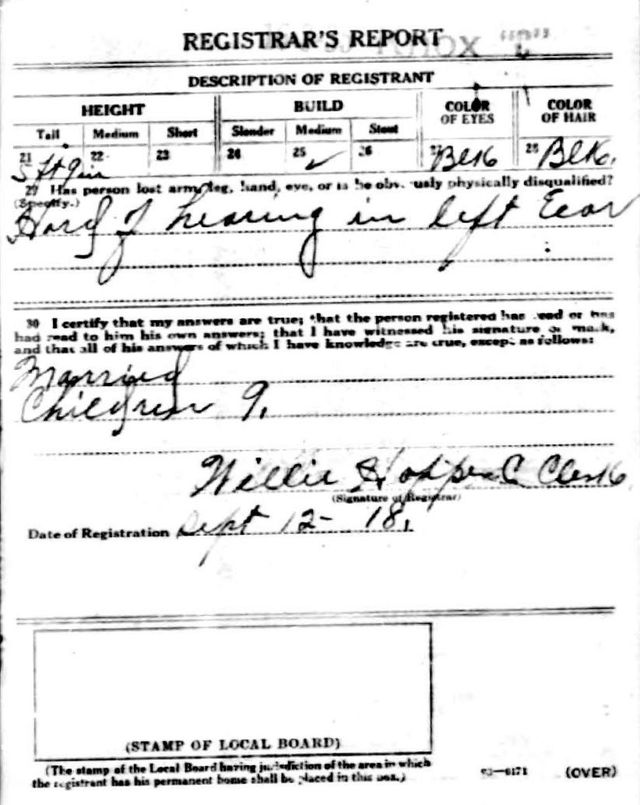 REGISTRAR'S REPORT
DESCRIPTION OF REGISTRANT
HEIGHT BUILD COLOR OF EYES COLOR OF HAIR
Tall Medium Short Slender Medium Stout
21 22 23 24 25 ✓ 26 27 Blk 28 Blk.
5 ft 9 in
29 Has person lost arm, leg, hand, eye, or is he obviously physically disqualified?
(Specify.)
Hard of hearing in left Ear
30 I certify that my answers are true; that the person registered has read or has
had read to him his own answers; that I have witnessed his signature or mark,
and that all of his answers of which I have knowledge are true, except as follows:
Married
Children 9.
Willie Clerk
(Signature of Registrar)
Date of Registration Sept 12 - 18.
(STAMP OF LOCAL BOARD)
(The stamp of the Local Board having jurisdiction of the area in which
the registrant has his permanent home shall be placed in this box.)
(OVER)